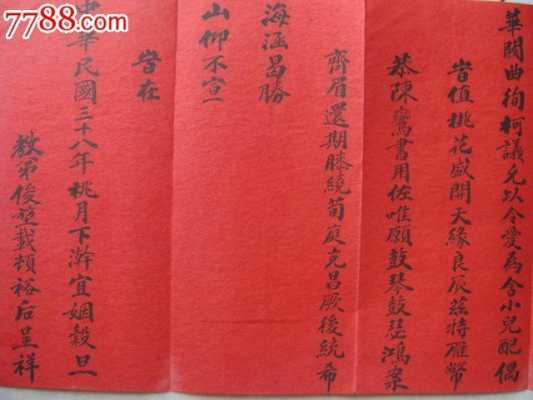 7788.com
華閥曲徇柯議允以令愛為舍小兒配偶
旹值桃花盛開天緣良辰茲特雁幣
恭陳鸞書用佐唯願鼓琴鼓瑟鴻案
齊眉還期膝繞荀庭克昌厥後統希
海涵曷勝
山仰不宣
旹在
中華民國三十八年桃月下澣宜姻穀旦
教弟俊堃載頓裕后呈祥